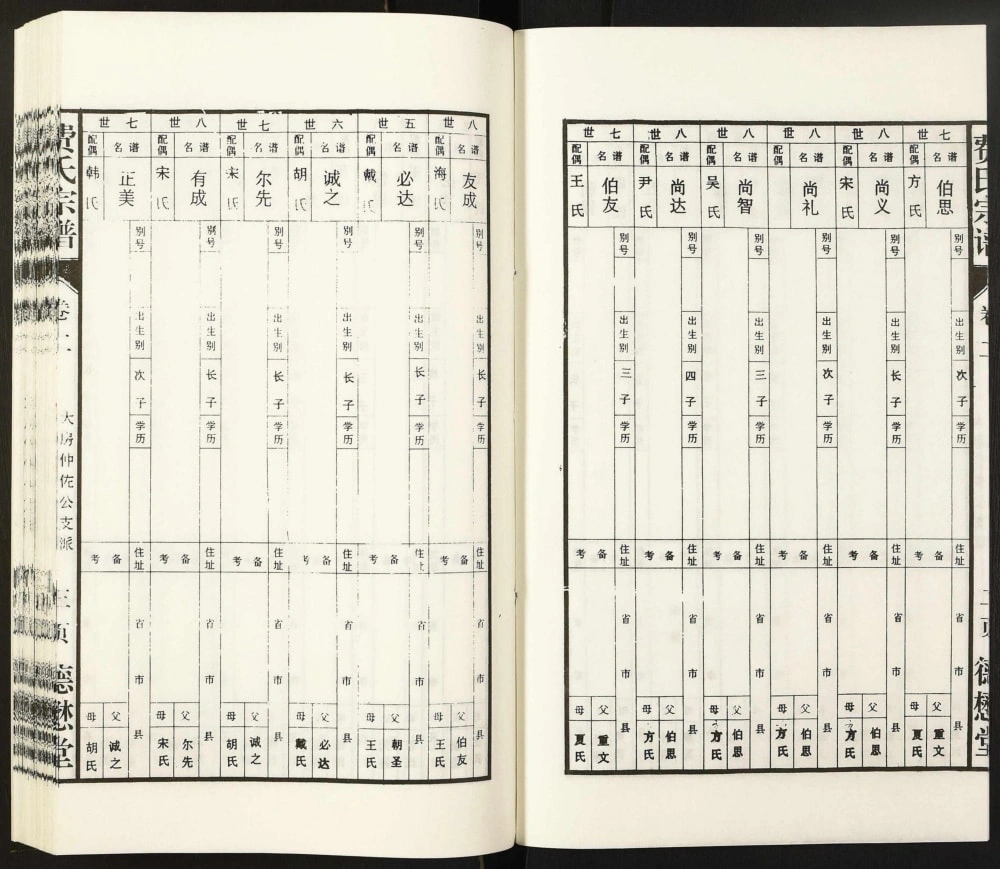 费氏宗谱
卷二
二页
德懋堂
七世
谱名
伯思
配偶
方氏
别号
出生别
次子
学历
住址
省市县
备考
父
重文
母
夏氏
八世
谱名
尚义
配偶
宋氏
别号
出生别
长子
学历
住址
省市县
备考
父
伯思
母
方氏
八世
谱名
尚礼
配偶
别号
出生别
次子
学历
住址
省市县
备考
父
伯思
母
方氏
八世
谱名
尚智
配偶
吴氏
别号
出生别
三子
学历
住址
省市县
备考
父
伯思
母
方氏
八世
谱名
尚达
配偶
尹氏
别号
出生别
四子
学历
住址
省市县
备考
父
伯思
母
方氏
七世
谱名
伯友
配偶
王氏
别号
出生别
三子
学历
住址
省市县
备考
父
重文
母
夏氏
八世
谱名
友成
配偶
海氏
别号
出生别
长子
学历
住址
省市县
备考
父
伯友
母
王氏
五世
谱名
必达
配偶
戴氏
别号
出生别
长子
学历
住址
省市县
备考
父
朝圣
母
王氏
六世
谱名
诚之
配偶
胡氏
别号
出生别
长子
学历
住址
省市县
备考
父
必达
母
戴氏
七世
谱名
尔先
配偶
宋氏
别号
出生别
长子
学历
住址
省市县
备考
父
诚之
母
胡氏
八世
谱名
有成
配偶
宋氏
别号
出生别
长子
学历
住址
省市县
备考
父
尔先
母
宋氏
七世
谱名
正美
配偶
韩氏
别号
出生别
次子
学历
住址
省市县
备考
父
诚之
母
胡氏
费氏宗谱
卷二
大房仲佐公支派
三页
德懋堂